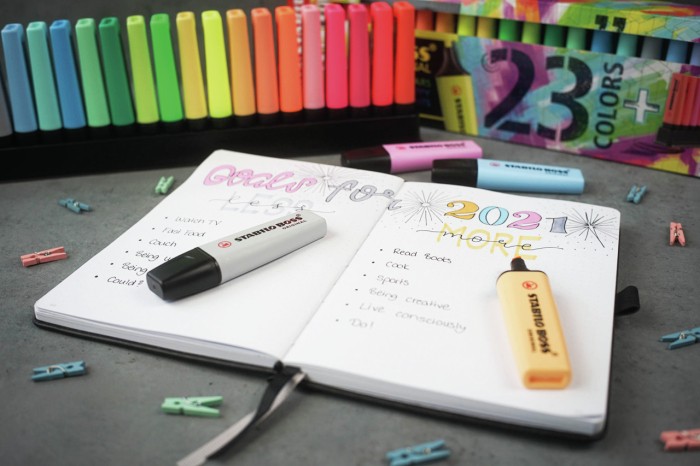 23
COLORS
+
Goals for
2021
LESS
less
MORE
more
Watch TV
Fast food
Couch
Being
Being
Could?
Read Books
Cook
Sports
Being creative
Live consciously
Do!
STABILO BOSS
ORIGINAL
STABILO BOSS
ORIGINAL
STABILO BOSS
STABILO BOSS